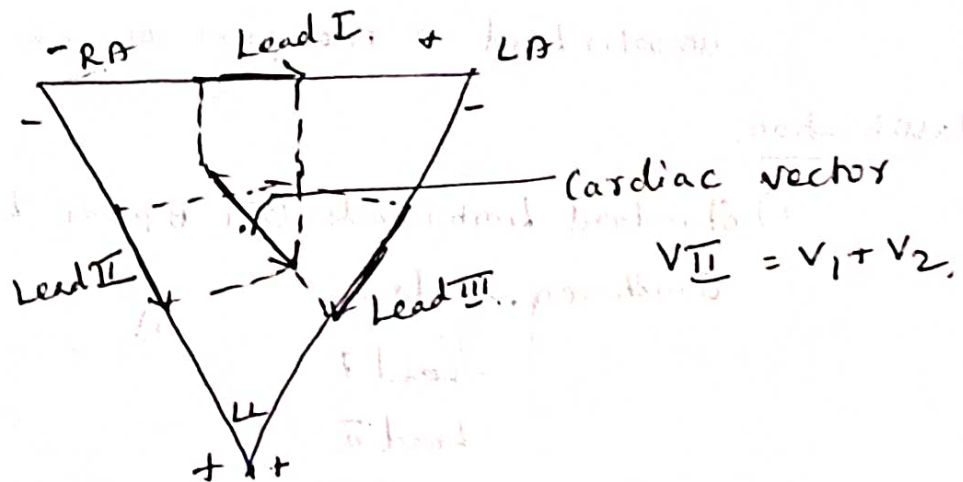 - RA Lead I + LA
- -
Cardiac vector
VII = V1 + V2.
Lead II Lead III
LF
+ +